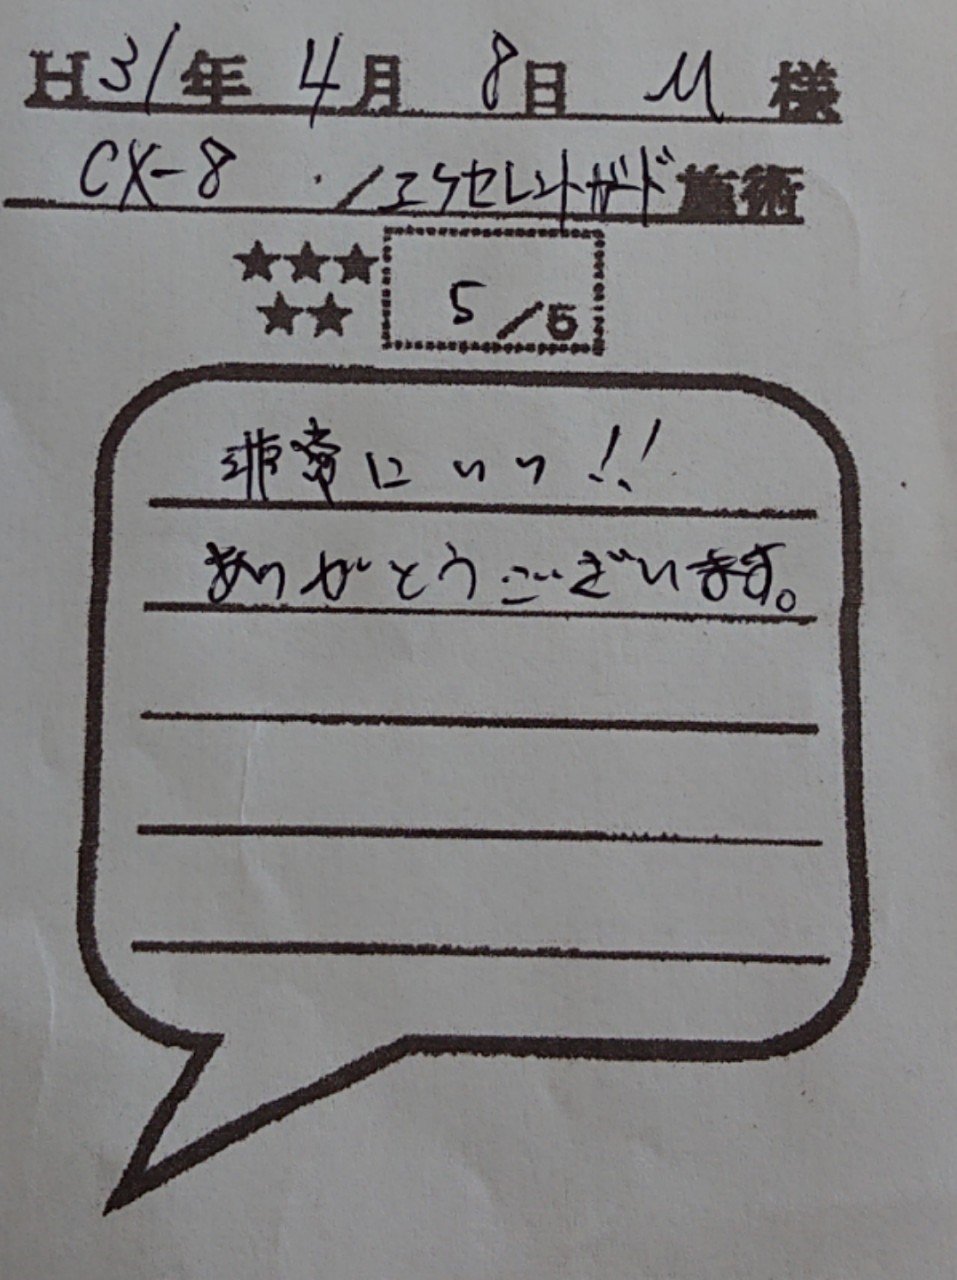 H31年 4月 8日 M 様
CX-8 ・/エクセレントガード施術
★★★
★★
5/5
非常にいい!!
ありがとうございます。